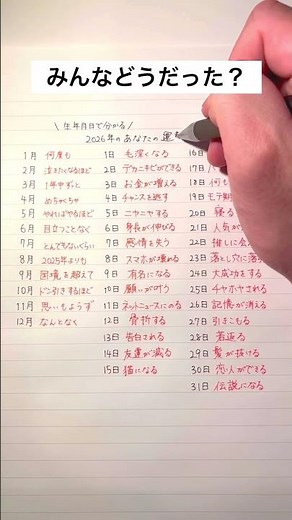 みんなどうだった？
\ 生年月日で分かる /
2026年のあなたの運
1月 何度も
2月 泣きたくなるほど
3月 1年中ずっと
4月 めちゃくちゃ
5月 やればやるほど
6月 目立つことなく
7月 とんでもないくらい
8月 2025年よりも
9月 国境を超えて
10月 ドン引きするほど
11月 思いもよらず
12月 なんとなく
1日 毛深くなる
2日 デカニキビができる
3日 お金が増える
4日 チャンスを逃す
5日 ニヤニヤする
6日 身長が伸びる
7日 感情を失う
8日 スマホが壊れる
9日 有名になる
10日 願いが叶う
11日 ネットニュースにのる
12日 骨折する
13日 告白される
14日 友達が減る
15日 猫になる
16日
17日
18日 何も
19日 モテ期
20日 寝る
21日 人気が
22日 推しに会
23日 落とし穴に落
24日 大成功をする
25日 チヤホヤされる
26日 記憶が消える
27日 引きこもる
28日 若返る
29日 髪が抜ける
30日 恋人ができる
31日 伝説になる